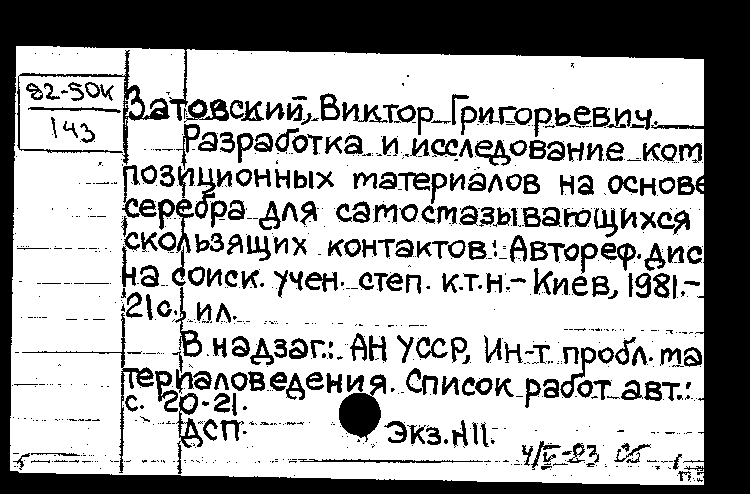 82-50к
143
Затовский, Виктор Григорьевич.
Разработка и исследование ком
позиционных материалов на основе
серебра для самосмазывающихся
скользящих контактов: Автореф. дис
на соиск. учен. степ. к.т.н.- Киев, 1981.-
21с., ил.
В надзаг.: АН УССР, Ин-т пробл. ма
териаловедения. Список работ авт.:
с. 20-21.
ДСП. Экз.N11.
4/V-83 Сб